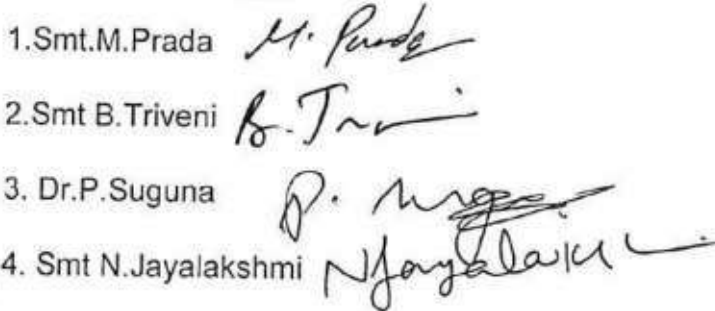 1.Smt.M.Prada M. Prada
2.Smt B.Triveni B. Tr
3. Dr.P.Suguna P. Sugu
4. Smt N.Jayalakshmi NJayalak